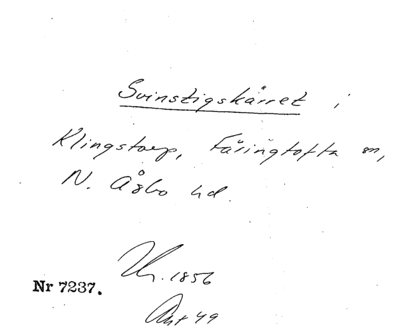 Svinstigskärret i
Klingstorp, Färingtofta sn,
N. Åsbo hd.
Nr 7237.
1856
Akt 49